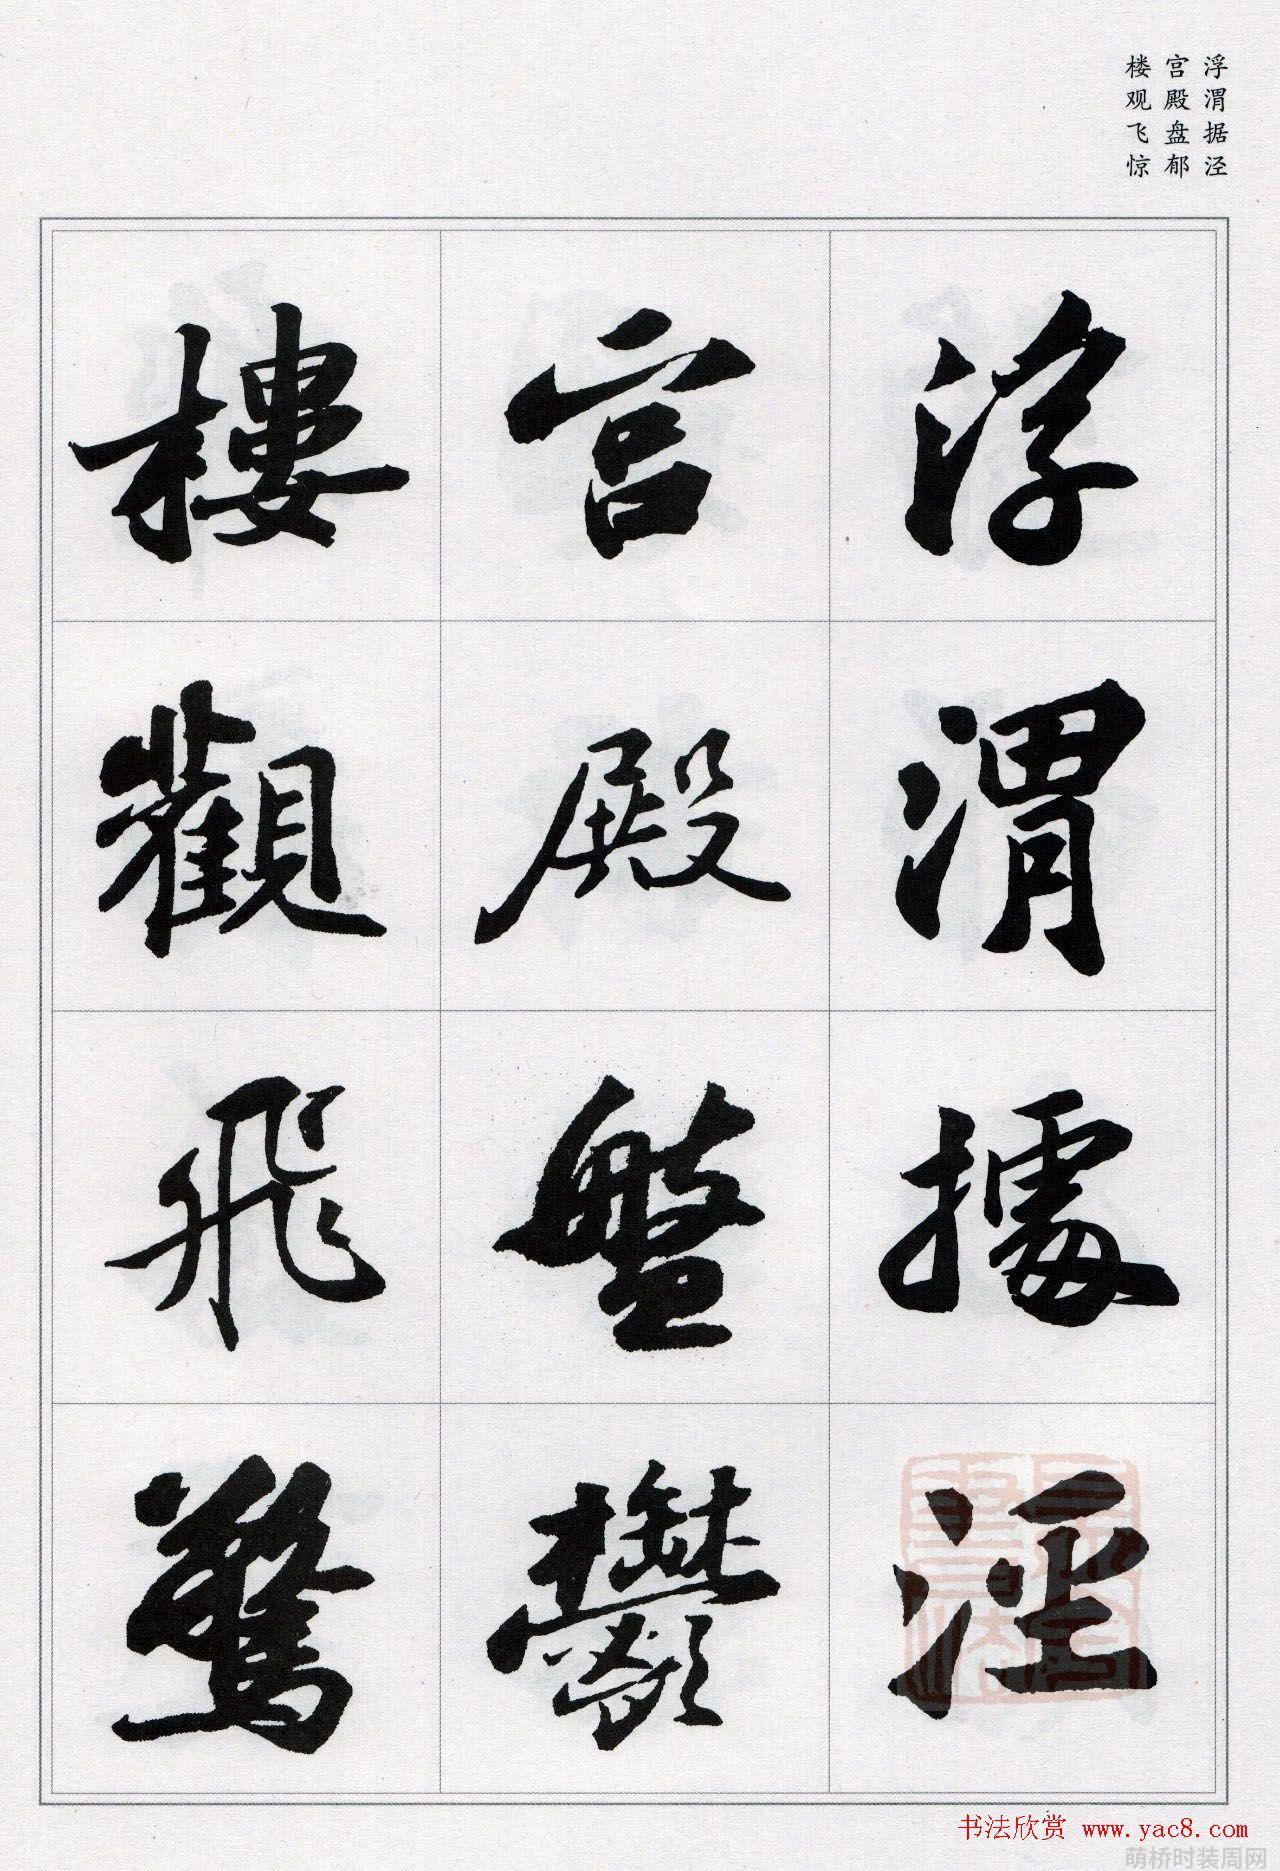 浮渭据泾
宫殿盘郁
楼观飞惊
浮渭據涇
宫殿盤鬱
樓觀飛驚
书法欣赏 www.yac8.com
萌桥时装周网